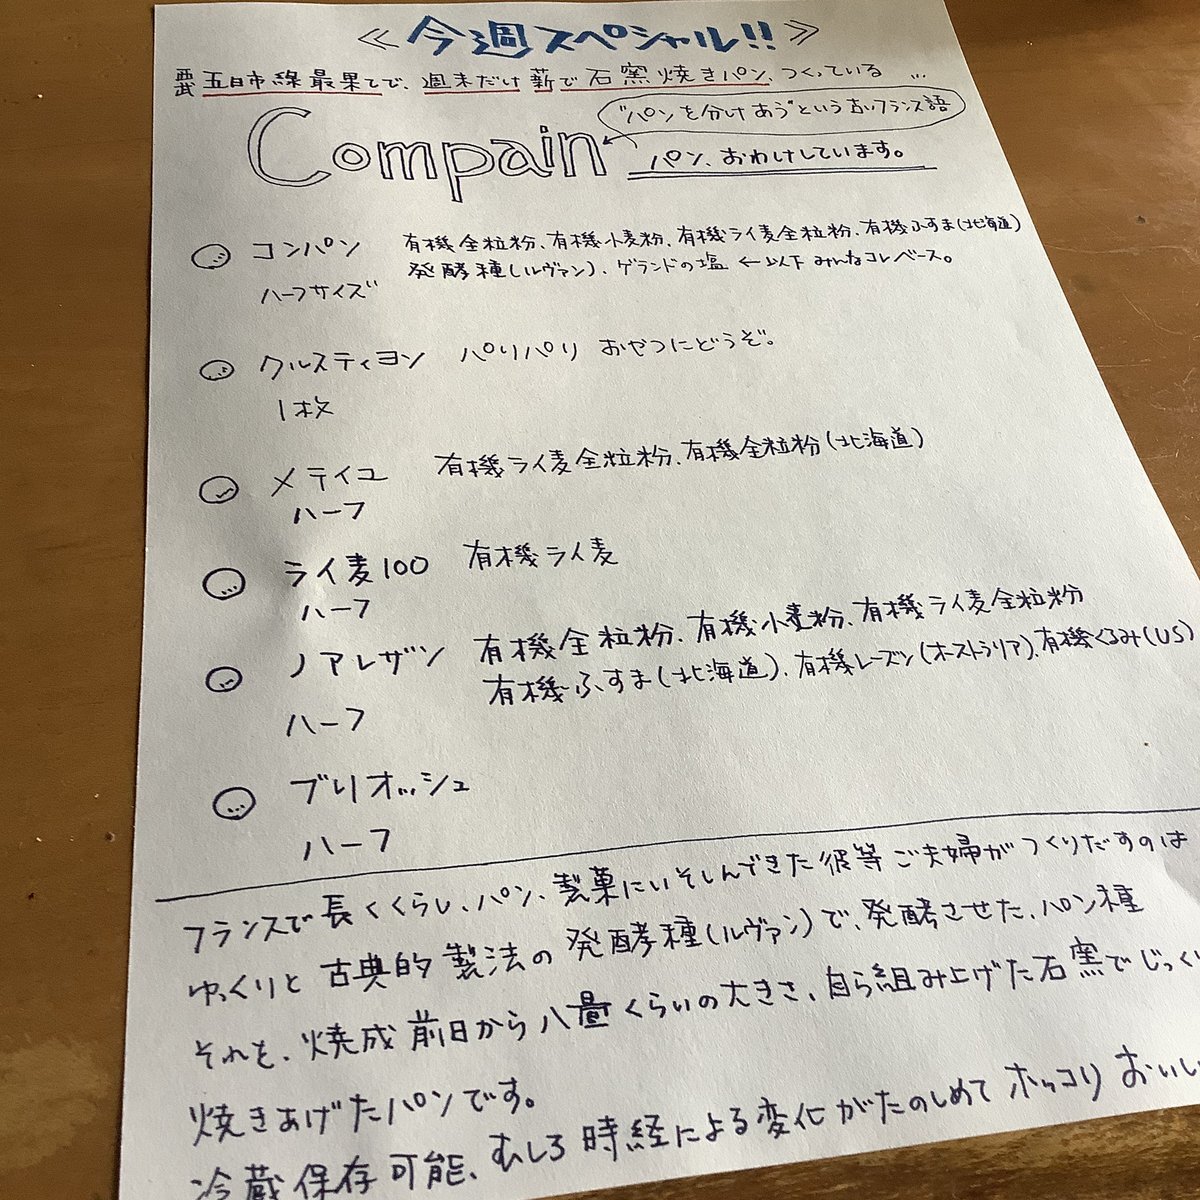 ≪今週スペシャル!!≫
西武 五日市線最果てで、週末だけ薪で石窯焼きパン、つくっている…
"パンを分けあう"という古いフランス語
Compain パン、おわけしています。
コンパン 有機全粒粉、有機小麦粉、有機ライ麦全粒粉、有機ふすま(北海道)
ハーフサイズ 発酵種(ルヴァン)、ゲランドの塩 ←以下みんなコレベース。
クルスティヨン パリパリ おやつにどうぞ。
1枚
メテイユ 有機ライ麦全粒粉、有機全粒粉(北海道)
ハーフ
ライ麦100 有機ライ麦
ハーフ
ノアレザン 有機全粒粉、有機小麦粉、有機ライ麦全粒粉
有機ふすま(北海道)、有機レーズン(オーストラリア)、有機くるみ(US)
ハーフ
ブリオッシュ
ハーフ
フランスで長くくらし、パン、製菓にいそしんできた彼等ご夫婦がつくりだすのは
ゆっくりと古典的製法の発酵種(ルヴァン)で、発酵させた、パン種
それを、焼成前日から八畳くらいの大きさ、自ら組み上げた石窯でじっくり
焼きあげたパンです。
冷蔵保存可能、むしろ時経による変化がたのしめてホッコリおいし